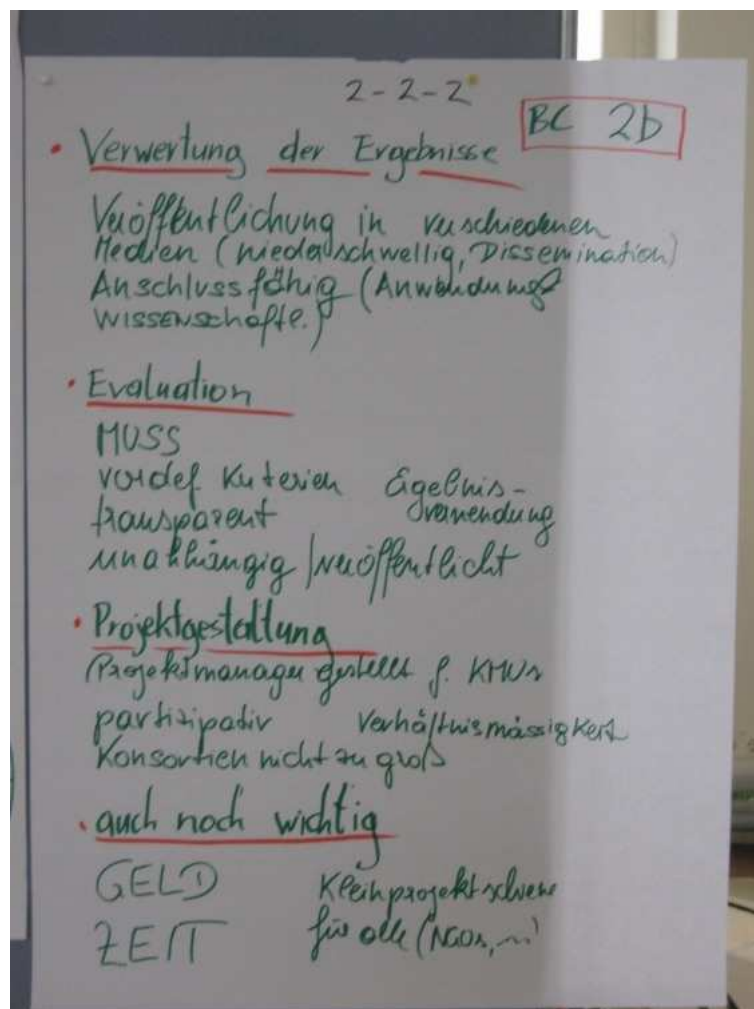 2-2-2
BC 2b
• Verwertung der Ergebnisse
Veröffentlichung in verschiedenen
Medien (niederschwellig, Dissemination)
Anschlussfähig (Anwendung
WISSENSchaftl.)
• Evaluation
MUSS
vordef Kriterien Ergebnis-
transparent verwendung
unabhängig / veröffentlicht
• Projektgestaltung
(Projektmanager gestellt f. KMUs
partizipativ Verhältnismässigkeit
Konsortien nicht zu groß
• auch noch wichtig
GELD Kleinprojektschiene
ZEIT für alle (NGOs, ...)